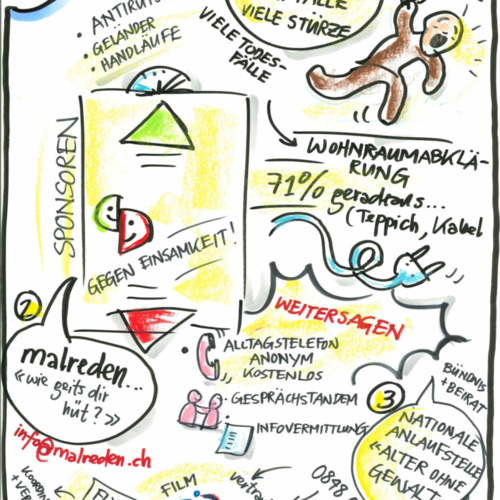 • ANTIRUTSCH
• GELÄNDER
• HANDLÄUFE
VIELE STÜRZE
VIELE TODES-
FÄLLE
WOHNRAUMABKLÄ-
RUNG
71% geradeaus...
(Teppich, Kabel
SPONSOREN
GEGEN EINSAMKEIT!
WEITERSAGEN
2
malreden...
«wie geits dir
hüt?»
info@malreden.ch
ALLTAGSTELEFON
ANONYM
KOSTENLOS
• GESPRÄCHSTANDEM
• INFOVERMITTLUNG
BÜNDNIS
+ BEIRAT
3
NATIONALE
ANLAUFSTELLE
«ALTER OHNE
GEWALT
FILM
0848 0